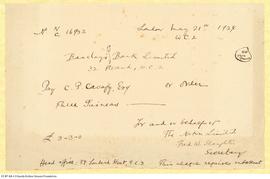 No N/C 16952 London May 21st 1924
W.C.2
Barclays Bank Limited
32 Strand, W.C.2
Pay C. P. Cavafy, Esq or Order
Three Guineas
£ 3-3-0
For and on behalf of
The Nation Limited
Secretary
Head office, 54 Lombard Street, E.C.3 This cheque requires endorsement